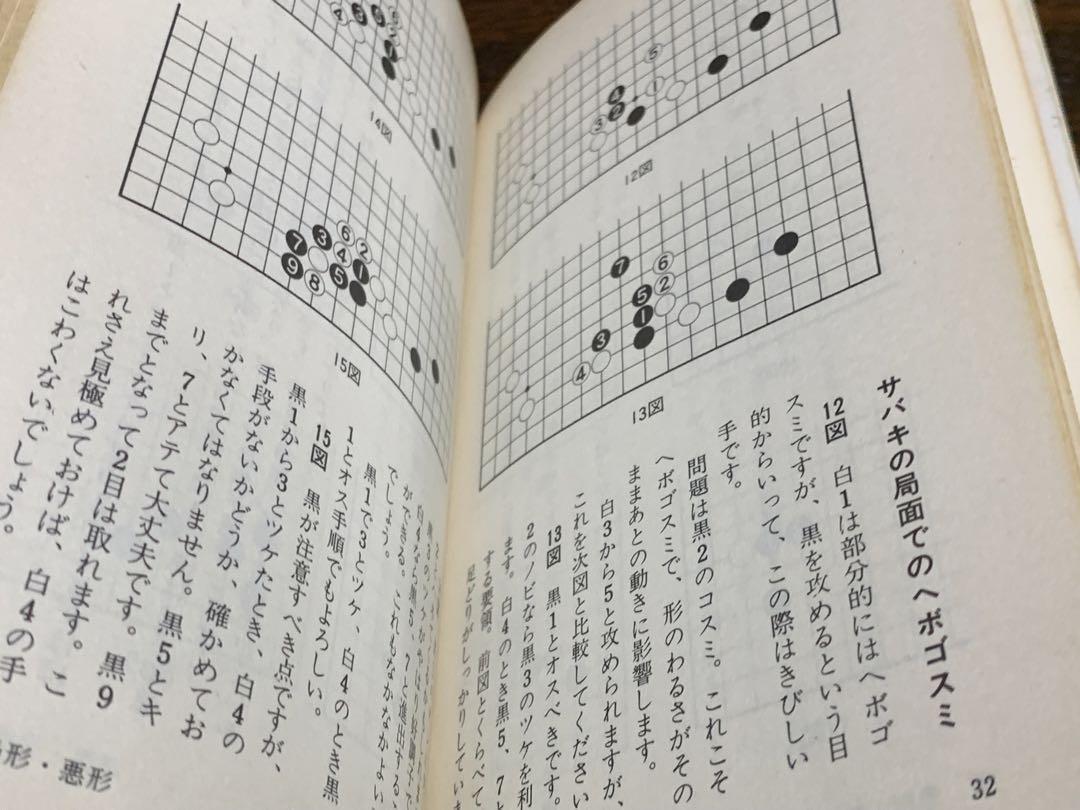 12図
13図
サバキの局面でのヘボゴスミ
12図 白1は部分的にはヘボゴ
スミですが、黒を攻めるという目
的からいって、この際はきびしい
手です。
問題は黒2のコスミ。これこそ
ヘボゴスミで、形のわるさがその
ままあとの動きに影響します。
白3から5と攻められますが、
これを次図と比較してください
13図 黒1とオスべきです。
2のノビなら黒3のツケを利
ます。白4のとき黒5、7と
する要領。前図とくらべて
足どりがしっかりしていま
32
14図
15図
がでぎる。これもなかなかよい
でしょう。
黒1で3とツケ、白4のとき黒
1とオス手順でもよろしい。
15図 黒が注意すべき点ですが、
黒1から3とツケたとき、白4の
手段がないかどうか、確かめてお
かなくてはなりません。黒5とキ
リ、7とアテて大丈夫です。黒9
までとなって2目は取れます。こ
れさえ見極めておけば、白4の手
はこわくないでしょう。
形・悪形